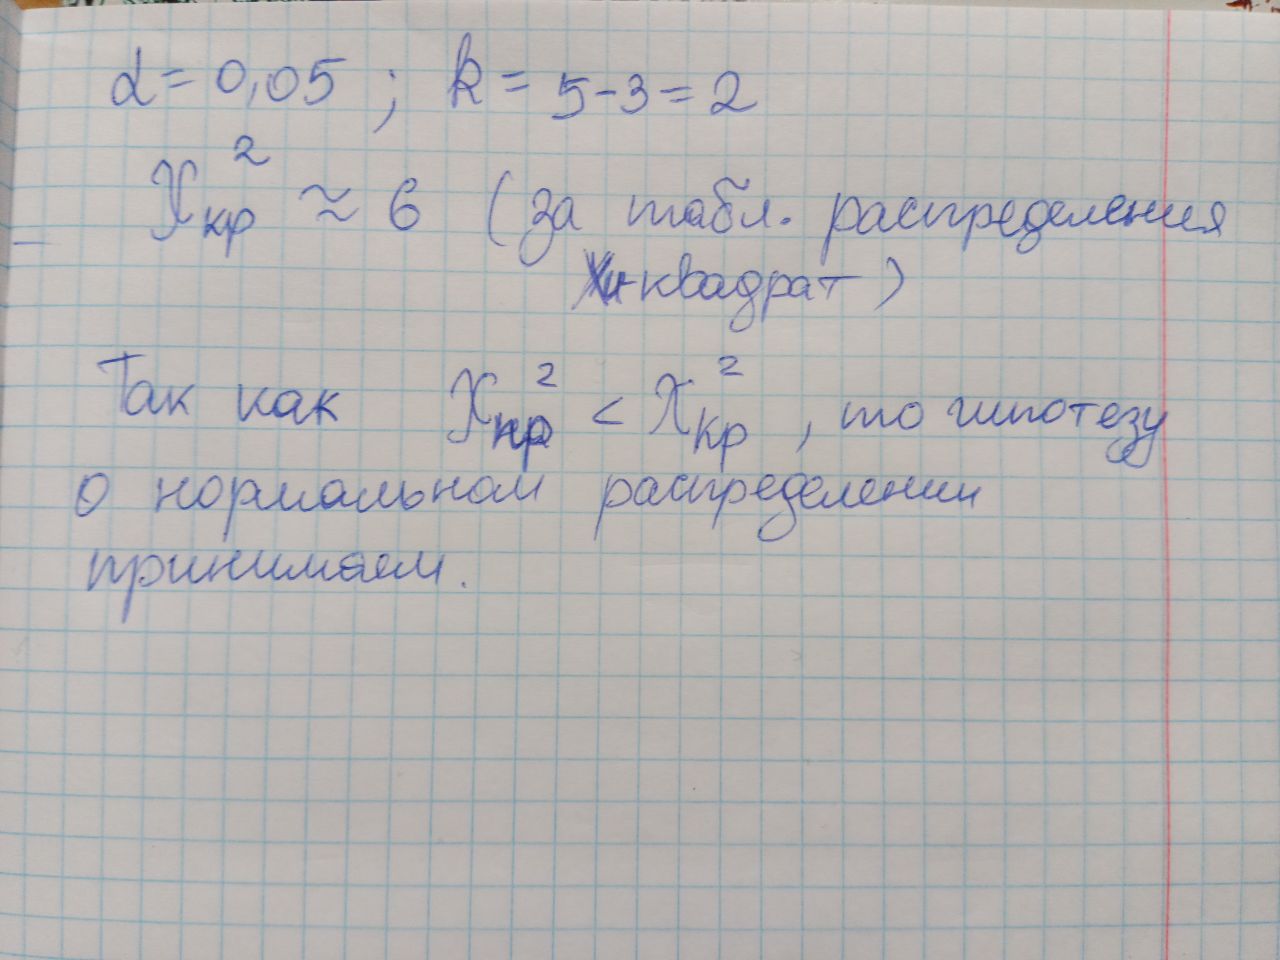 α = 0,05 ; k = 5-3 = 2
χ²кр ≈ 6 (за табл. распределения
Хи-квадрат)
Так как χ²нр < χ²кр , то гипотезу
о нормальном распределении
принимаем.